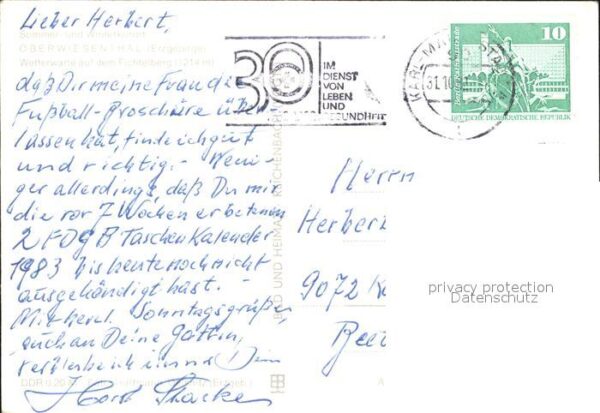 Lieber Herbert,
Sommer- und Winterkurort
OBERWIESENTHAL (Erzgebirge)
Wetterwarte auf dem Fichtelberg (1214 m)
daß Dir meine Frau die
Fußball-Broschüre über-
lassen hat, finde ich gut
und richtig. Weni-
ger allerdings, daß Du mir
die vor 7 Wochen erbetenen
2 FDGB Taschenkalender
1983 bis heute noch nicht
ausgehändigt hast.
Mit herzl. Sonntagsgrüßen,
auch an Deine Gattin,
verbleibe ich immer Dein
Horst
DDR 0,20
BILD UND HEIMAT REICHENBACH
30
IM
DIENST
VON
LEBEN
UND
GESUNDHEIT
KARL-MARX-STADT
31.10
10
DEUTSCHE DEMOKRATISCHE REPUBLIK
Herrn
Herbert
9072
privacy protection
Datenschutz